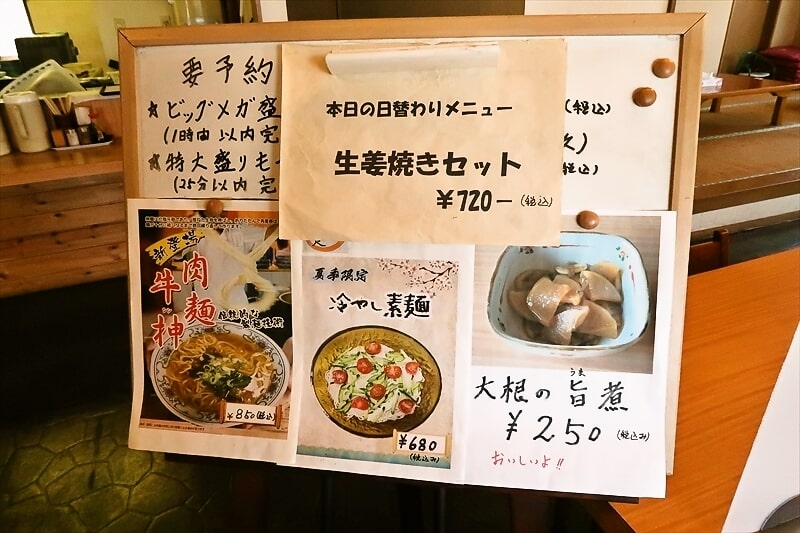 要予約
★ビッグメガ盛
(1時間以内完
★特大盛りモ
(25分以内 完
(税込)
税込)
本日の日替わりメニュー
生姜焼きセット
￥720－(税込)
新登場
牛肉麺
神
伝統的な
製麺技術
￥850(税込)
夏季限定
冷やし素麺
￥680
(税込み)
大根の旨煮
うま
￥250(税込み)
おいしいよ!!